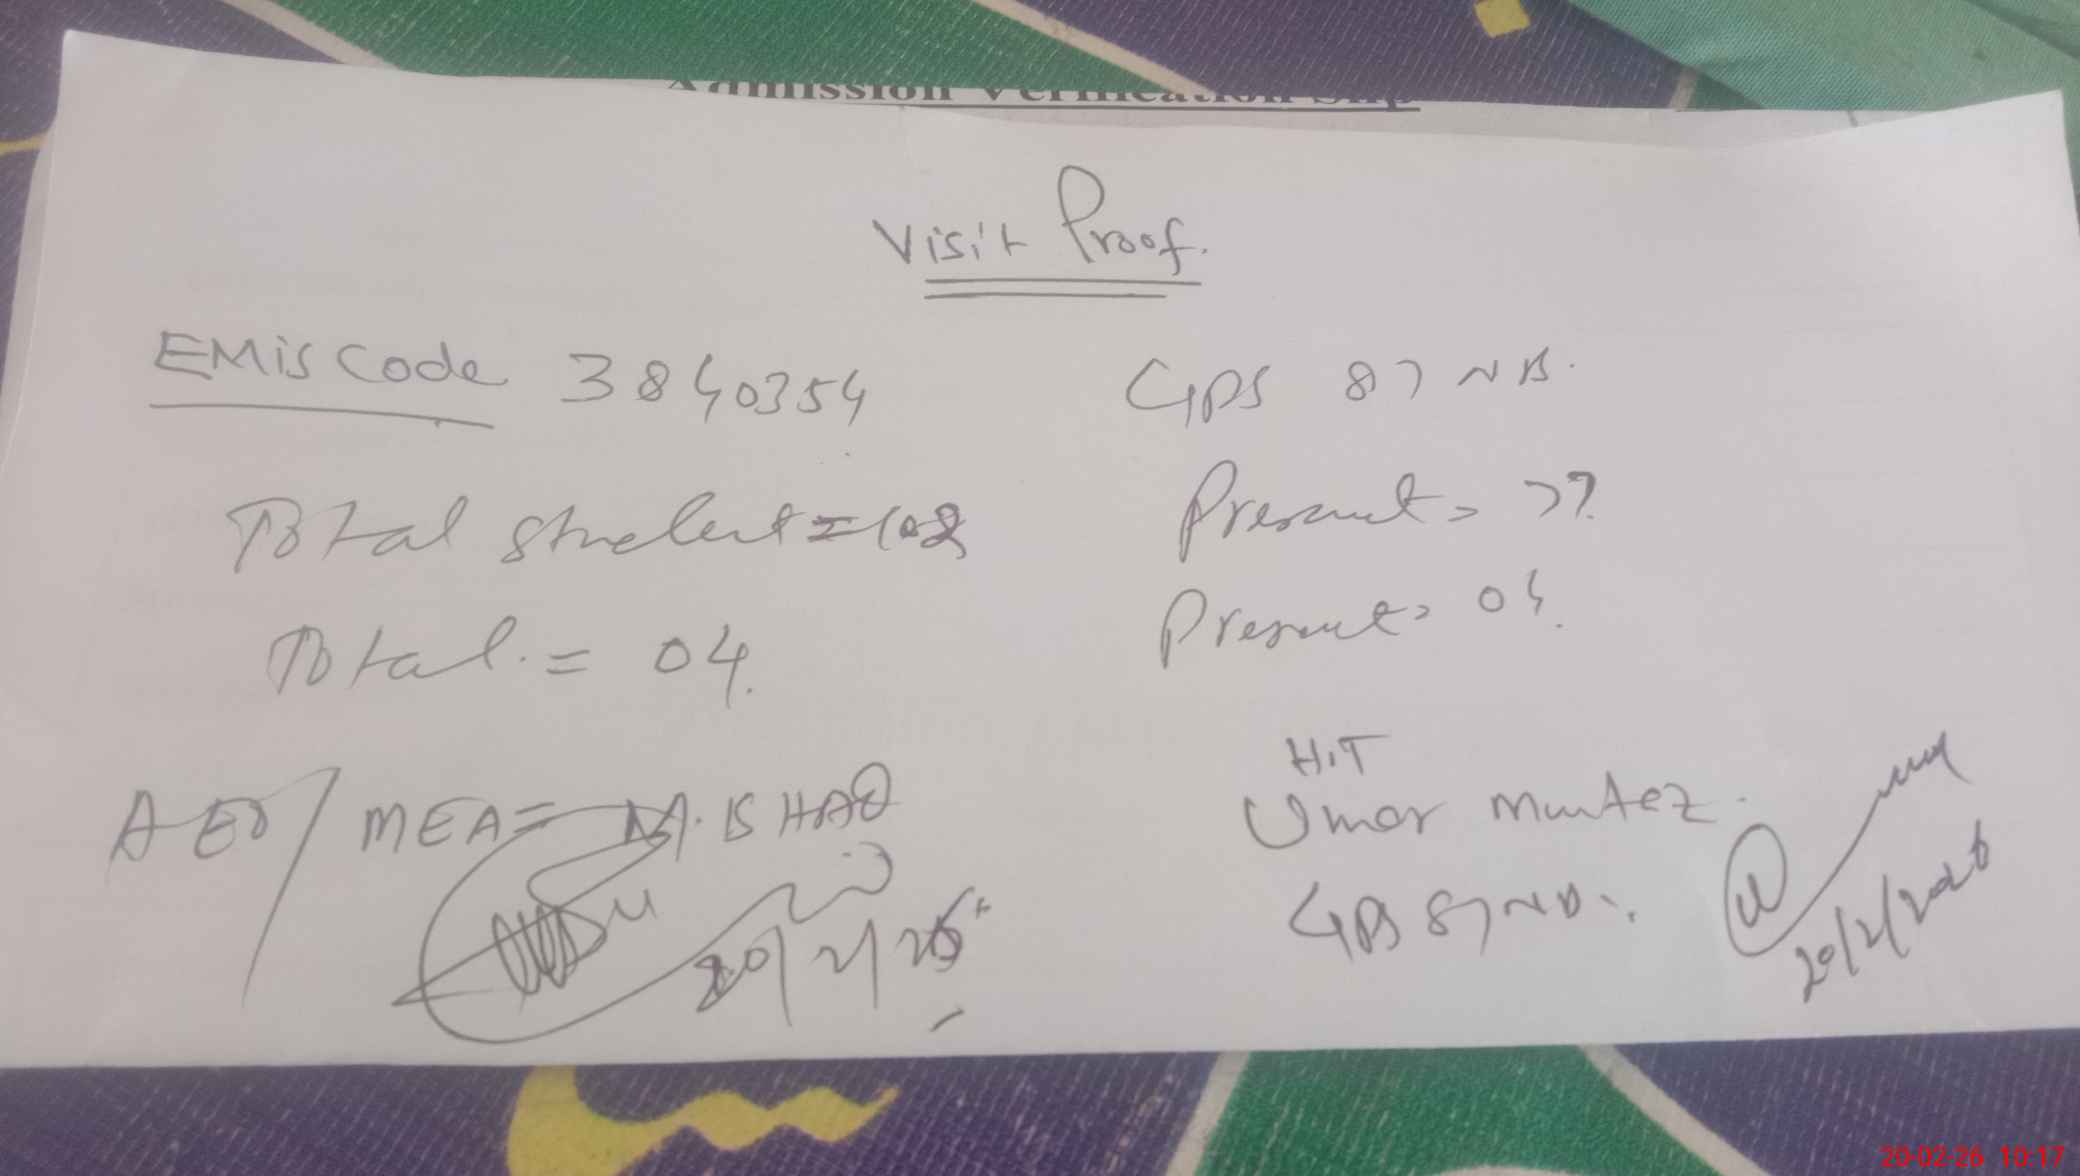 Admission Verification Slip
Visit Proof.
EMIS Code 3840354 GPS 87 NB.
Total student = 102 Present = 77
Total. = 04. Present = 04.
AEO / MEA = M. ISHAQ
H.T
Umar Mumtez.
GPS 87 NB.
20/2/26
20/2/2026
20-02-26 10:17